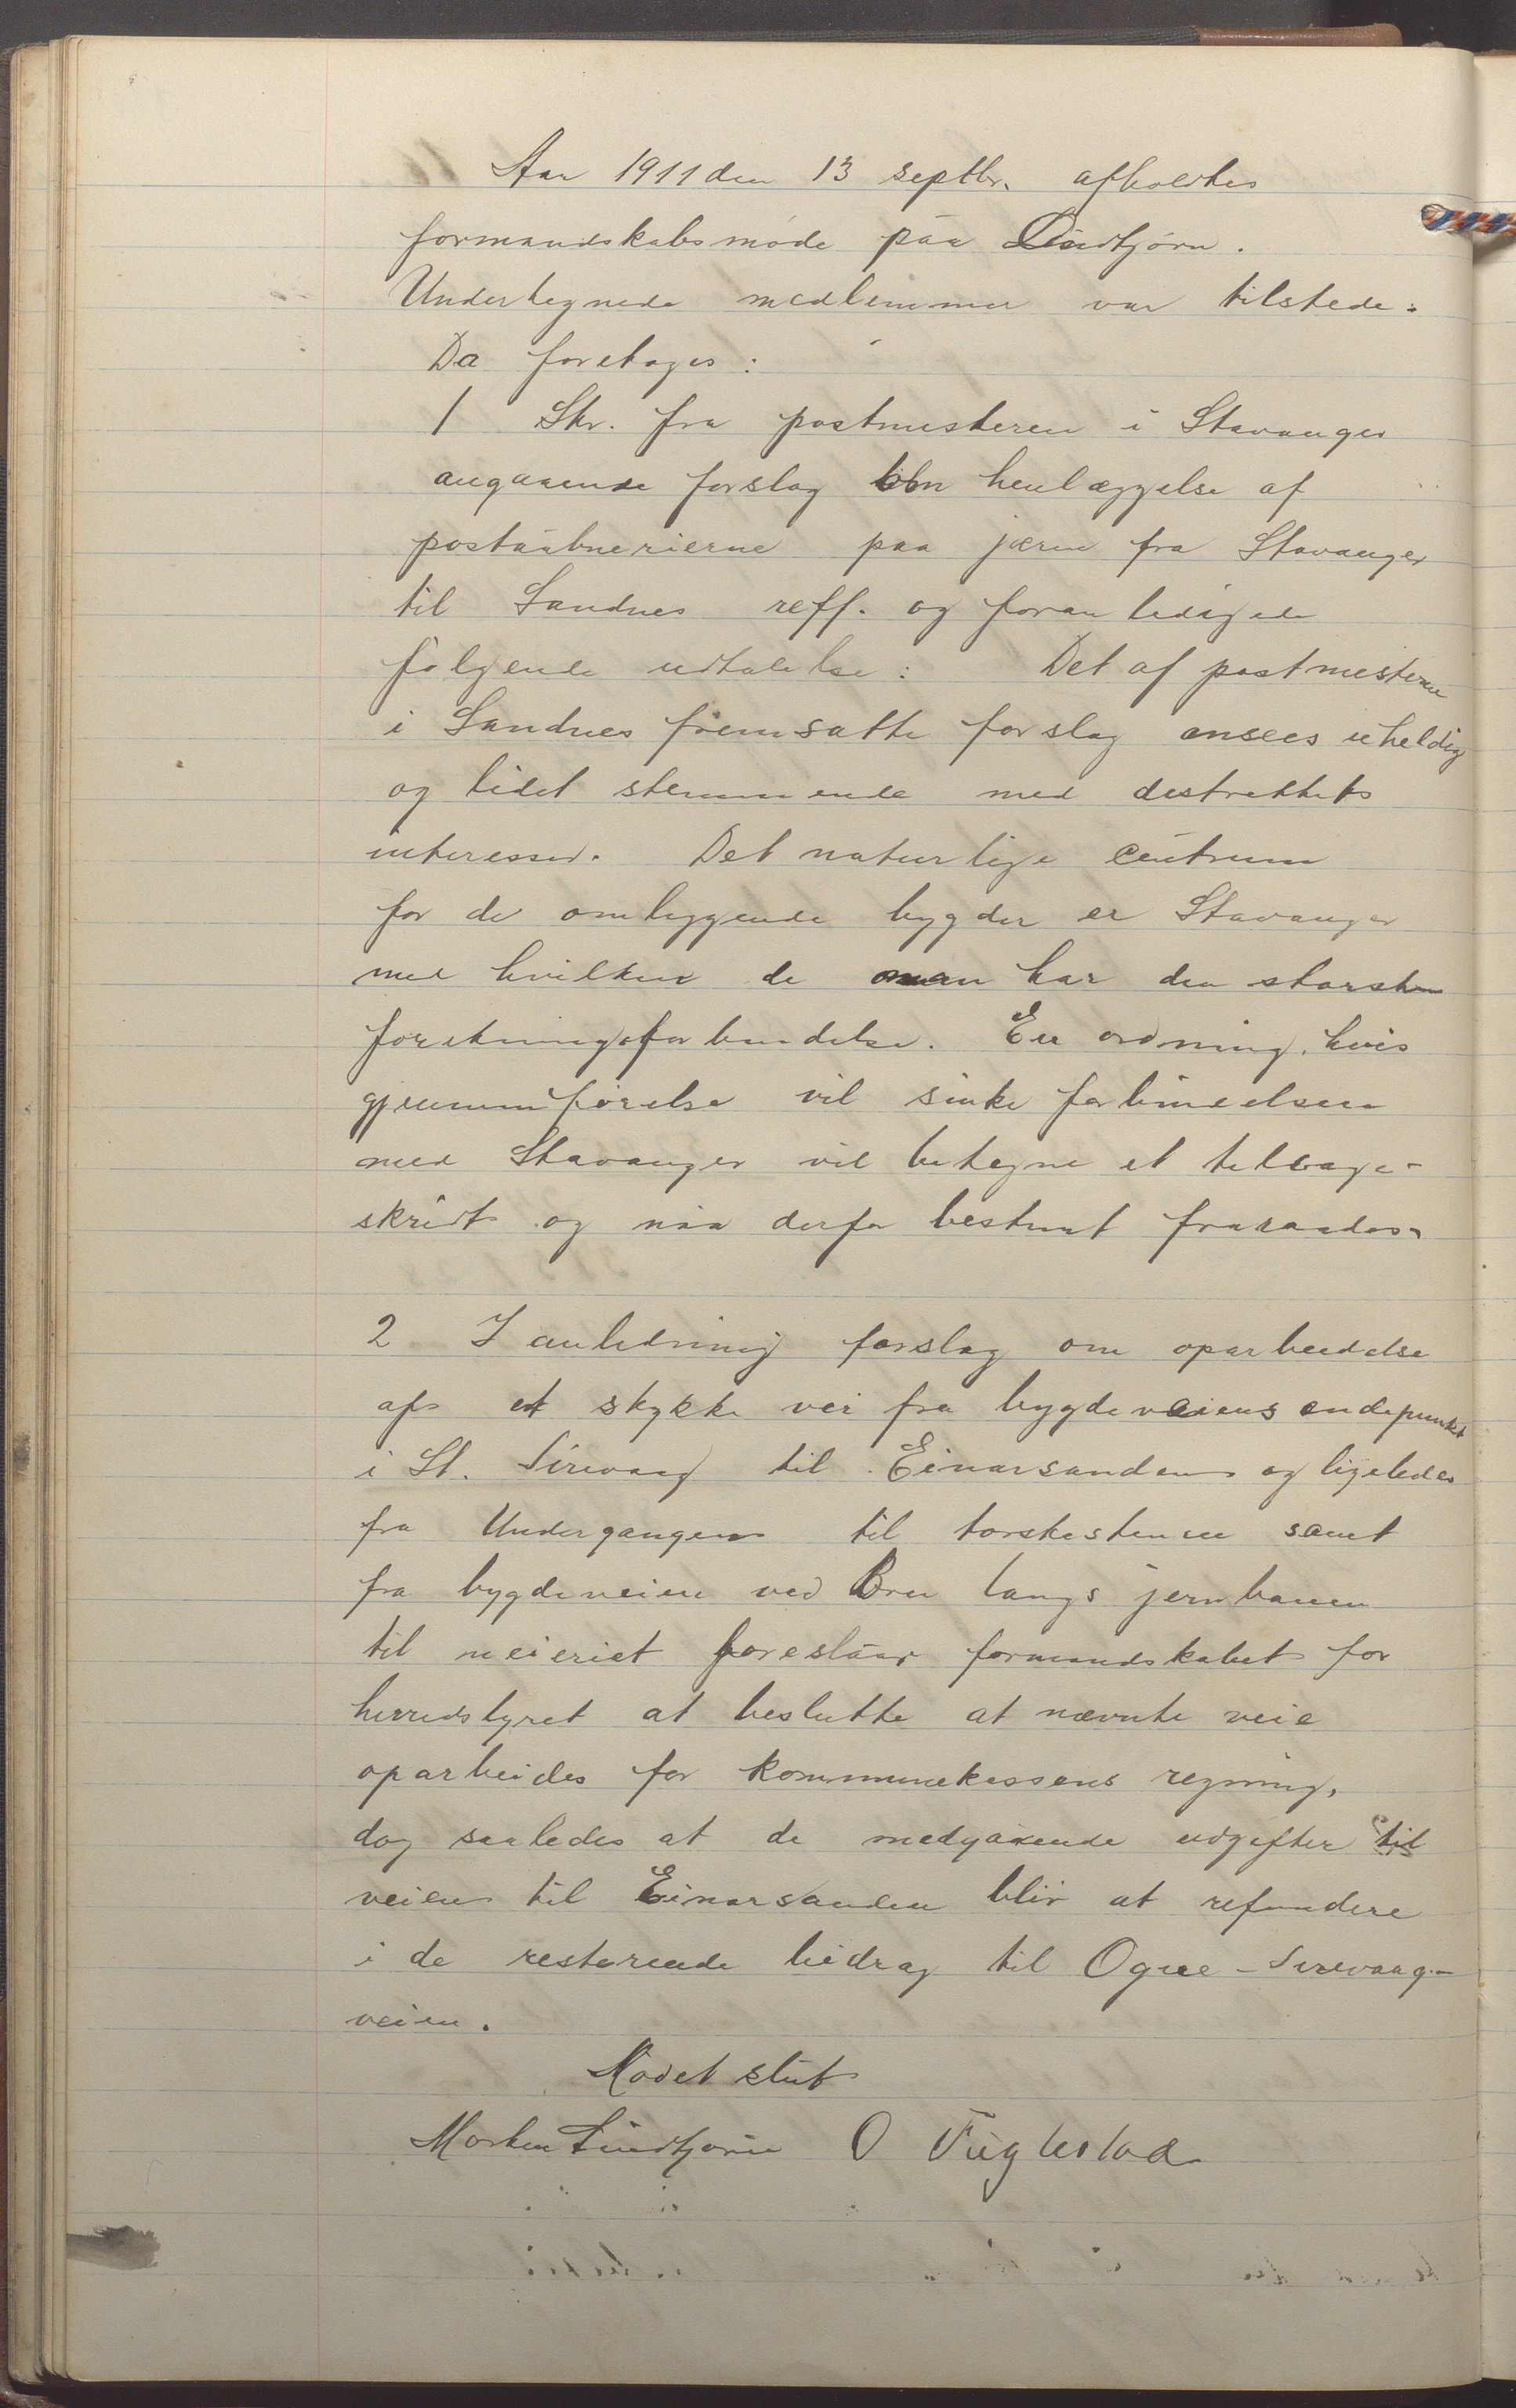 Aar 1911 den 13 septbr. afholdtes
formandskabsmøde paa Lindtjørn.
Undertegnede medlemmer var tilstede.
Da foretoges:
1 Skr. fra postmesteren i Stavanger
angaaende forslag om henlæggelse af
postaabnerierne paa jæren fra Stavanger
til Sandnes reff. og foranledigede
følgende udtalelse: Det af postmesteren
i Sandnes fremsatte forslag ansees uheldig
og lidet stemmende med destrektets
interesser. Det naturlige centrum
for de omliggende bygder er Stavanger
med hvilken de man har den største
foretningsforbindelse. En ordning, hvis
gjennemførelse vil sinke forbindelsen
med Stavanger vil betegne et tilbage-
skridt og maa derfor bestemt fraraades.
2 I anledning forslag om oparbeidelse
af et stykke vei fra bygdeveiens endepunkt
i St. Sirevaag til Einarsanden og ligeledes
fra Undergangen til torskestenene samt
fra bygdeveien ved Bru langs jernbanen
til meieriet foreslaar formandskabet for
herredstyret at beslutte at nævnte veie
oparbeides for kommunekassens regning,
dog saaledes at de medgaaende udgifter til
veien til Einarsanden blir at refundere
i de resterende bidrag til Ogne-Sirevaag-
veien.
Mødet slut
Morten Lindtjørn O Fuglestad